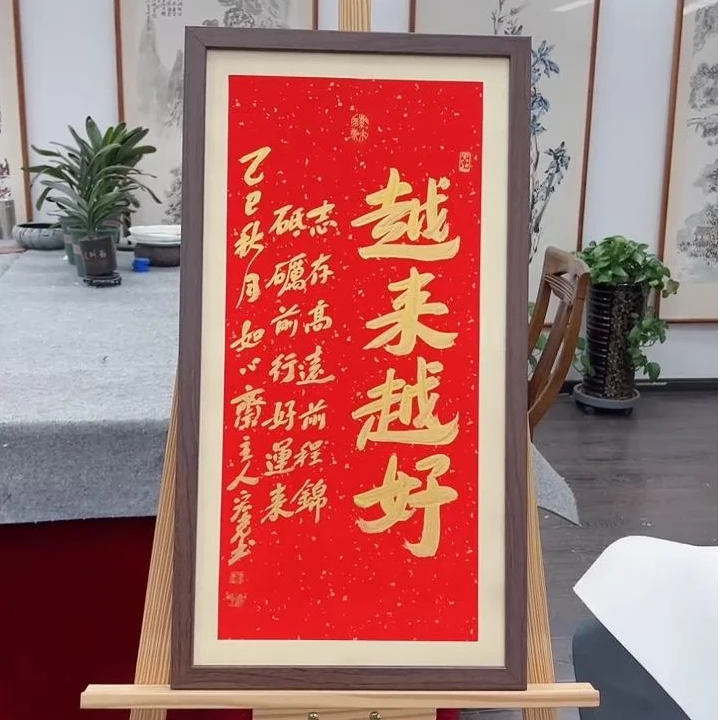 越来越好
志存高遠前程錦
砥礪前行好運来
乙巳秋月如心齋主人